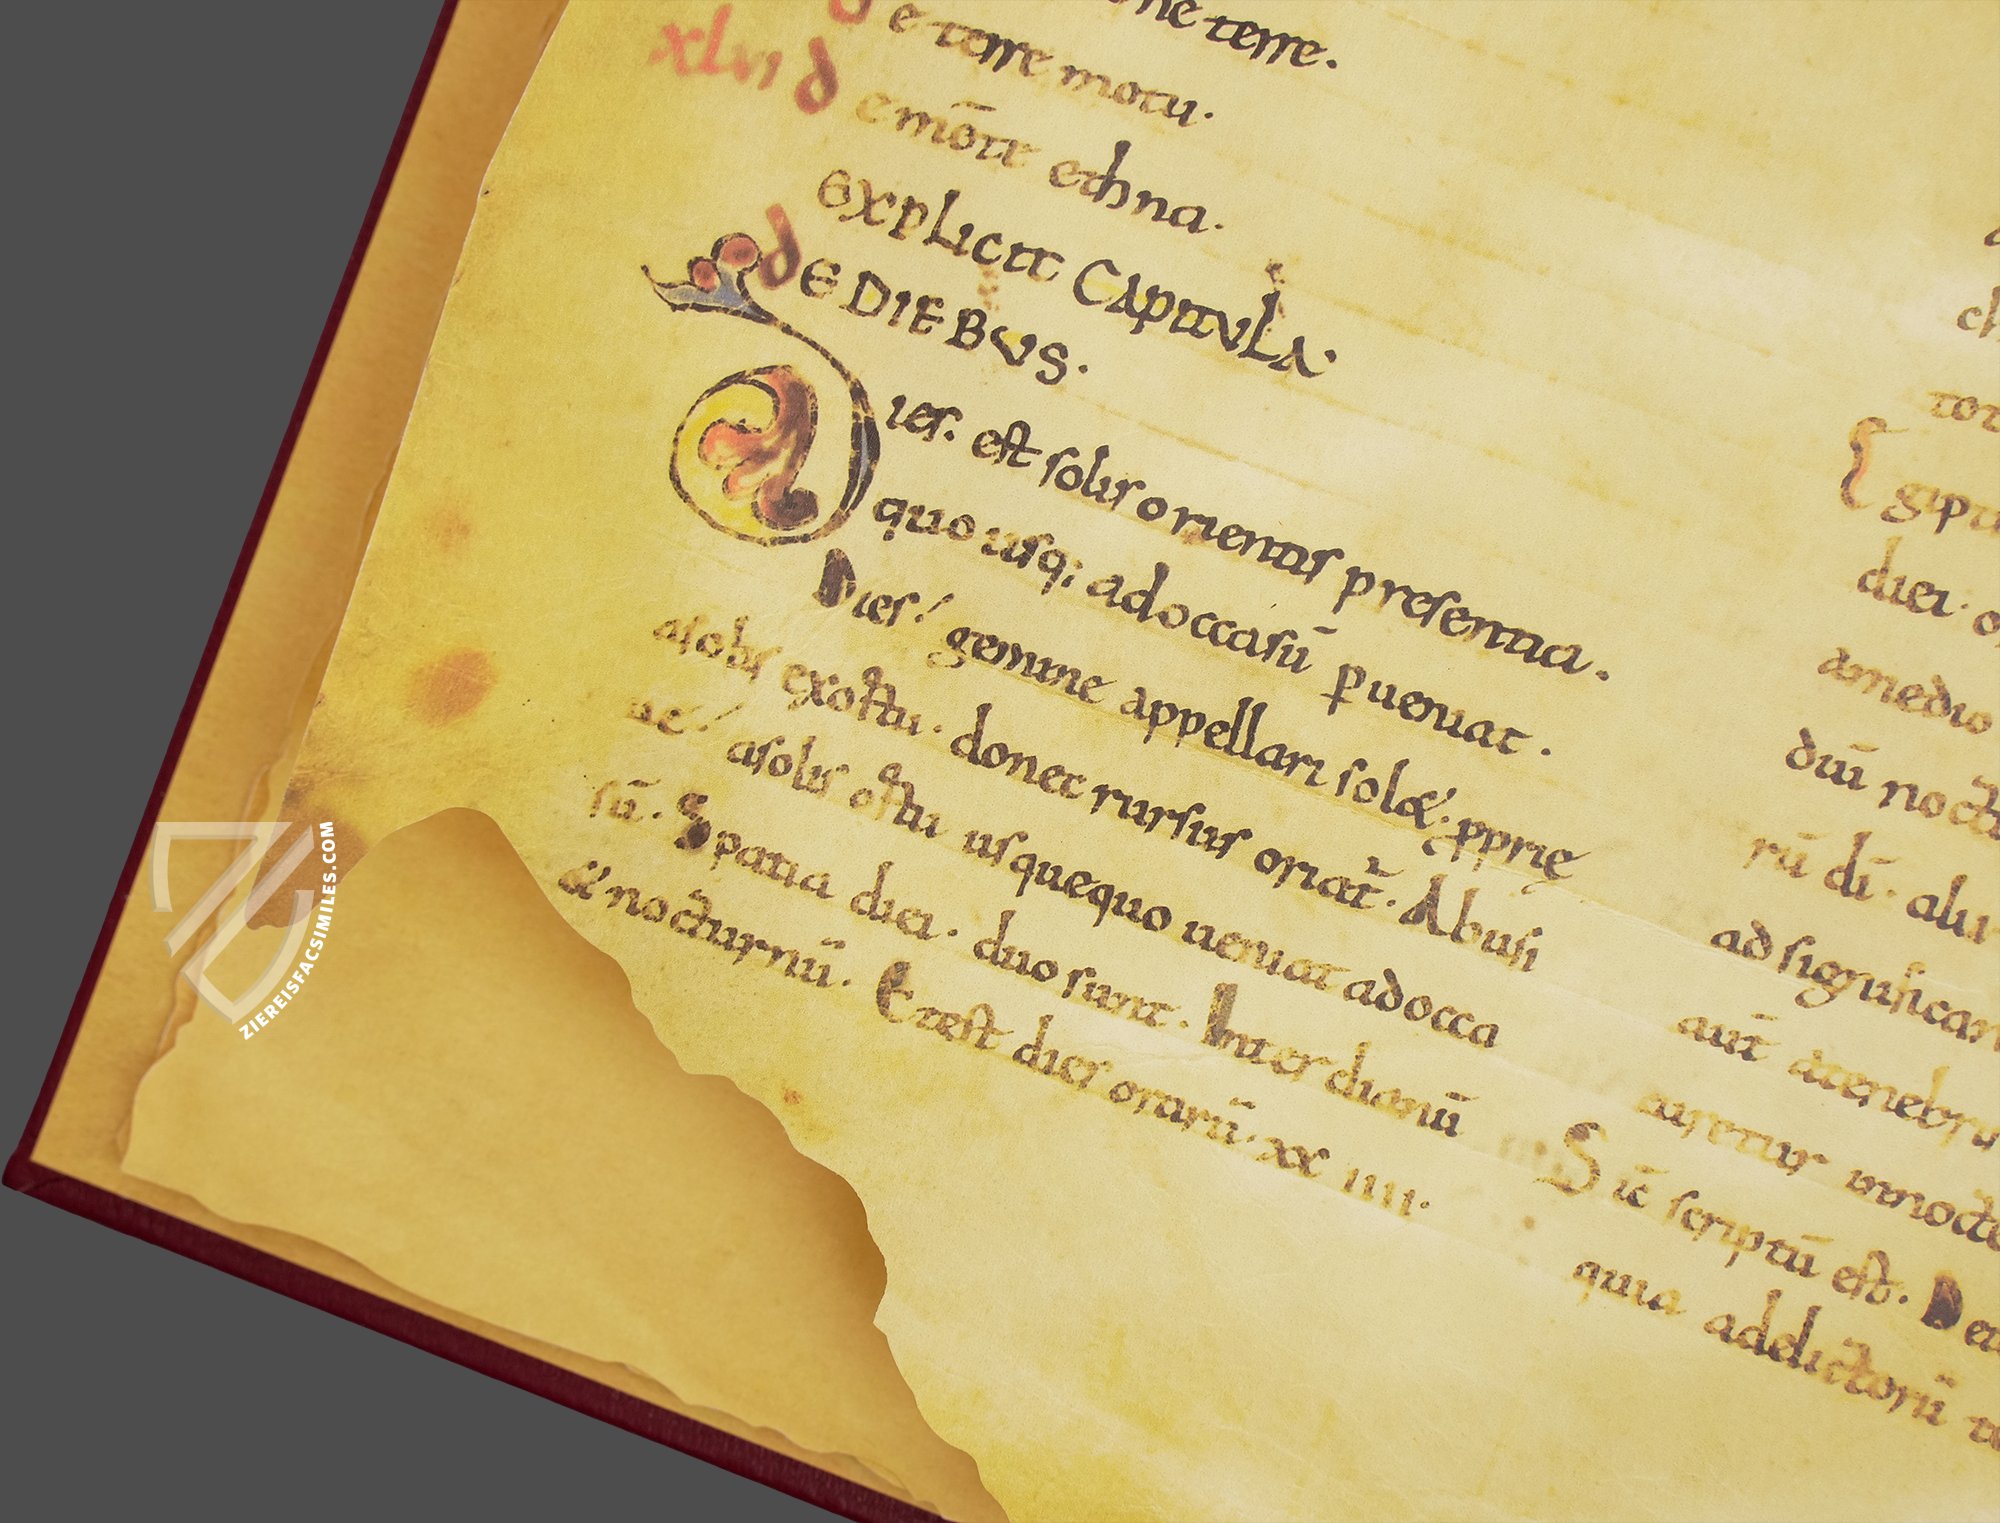 ne terre.
de terre motu.
xlvi de mōte ethna.
explicit CApituLA.
de DIEBVS.
Dies. est solis orientis presentia.
quo usq; adoccasū pueniat.
Dies! gemine appellari solet. pprię
asolis exortu. donec rursus oriat. Abusi
ue! asolis ortu usquequo ueniat adocca
sū. Spatia diei. duo sunt. Inter dianū
& nocturnū. Et est dies orarū. xx iiii.
tot
gipti
diei. o
amedio
diui noct
rū di. alu
ad significan
aut atenebris
auretur innocte
Sic scriptū est. Den
quia addictorū te
ZIEREISFACSIMILES.COM